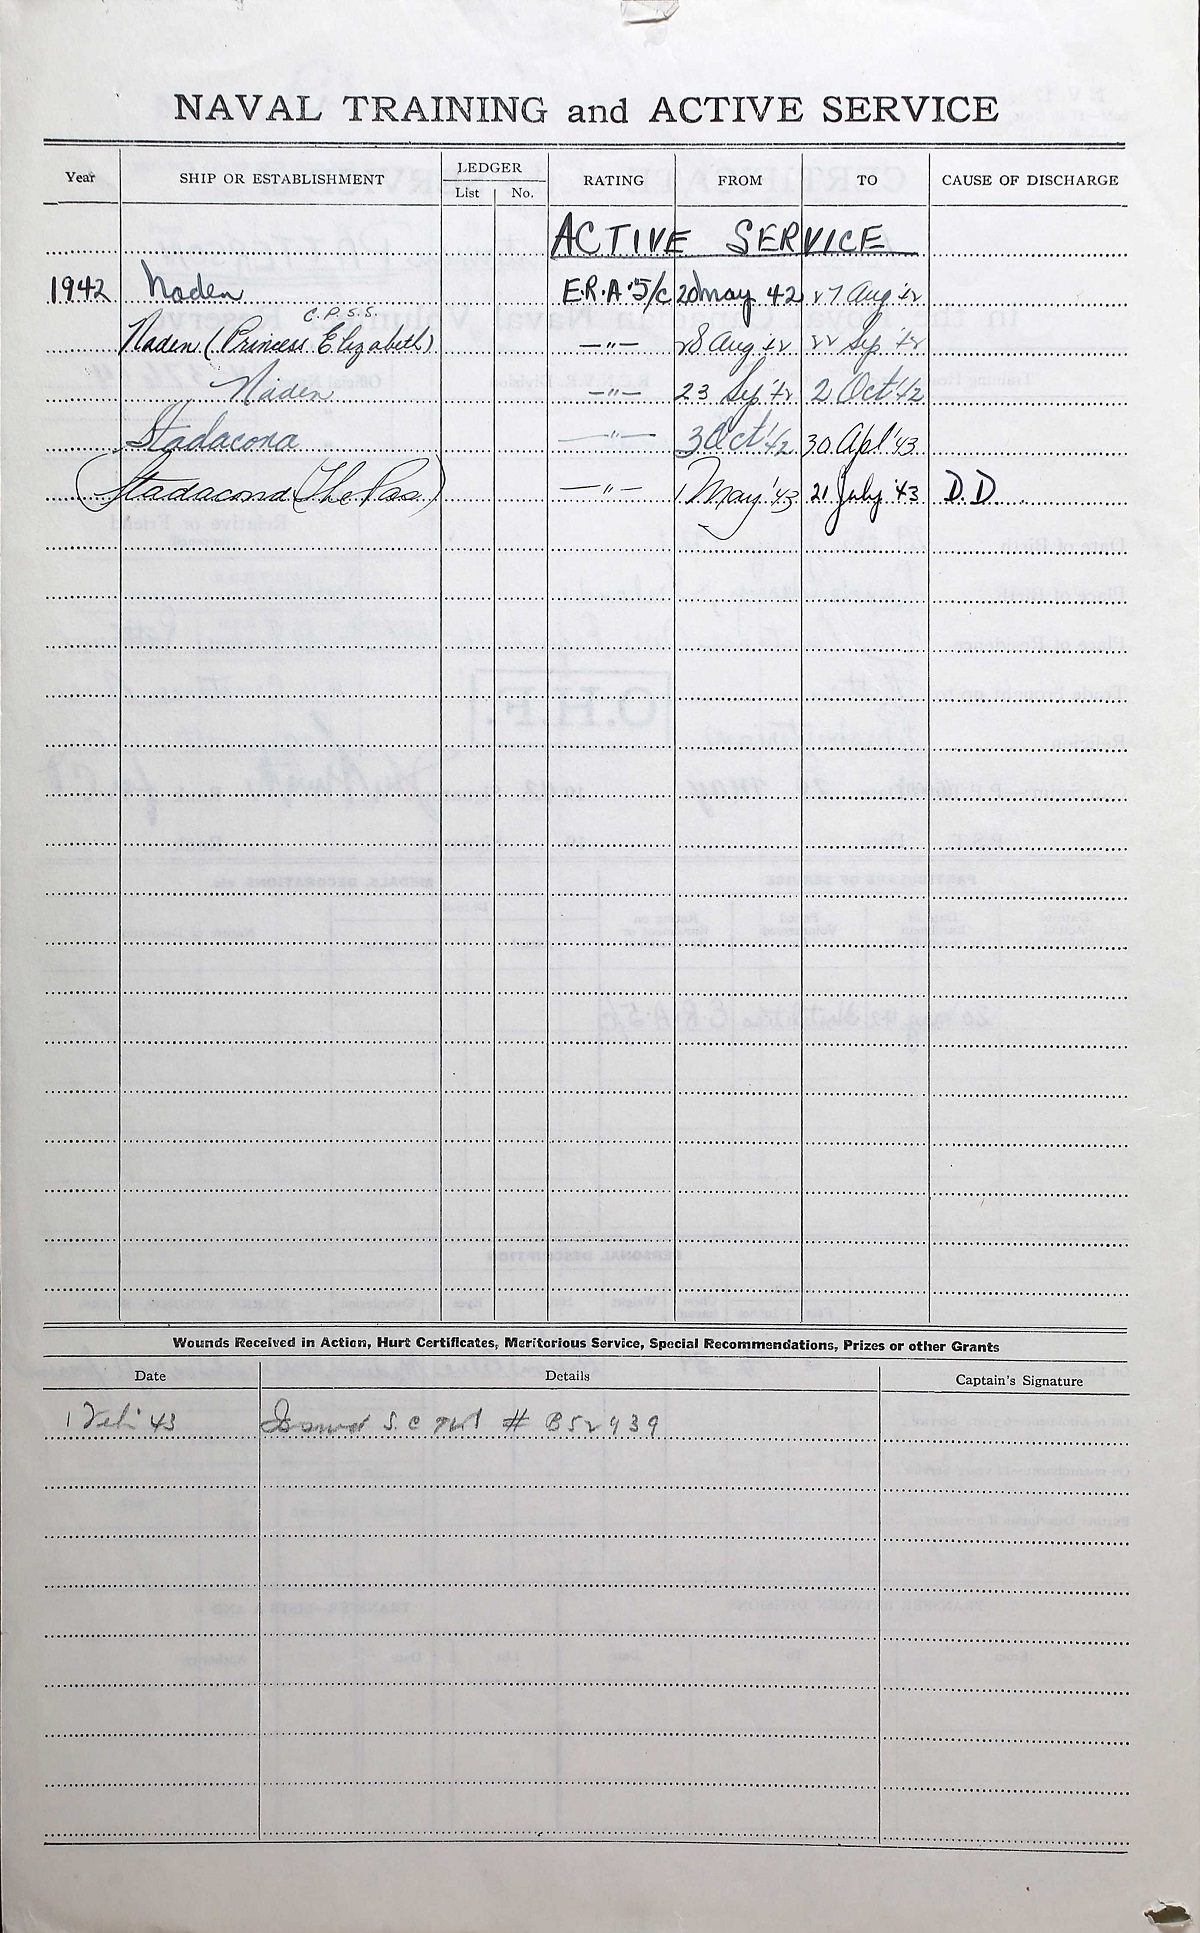 NAVAL TRAINING and ACTIVE SERVICE
Year SHIP OR ESTABLISHMENT LEDGER List No. RATING FROM TO CAUSE OF DISCHARGE
ACTIVE SERVICE
1942 Naden E.R.A. 5/c 20 May 42 27 Aug '42
C.P.S.S.
Naden (Princess Elizabeth) —"— 28 Aug '42 22 Sep '42
Naden —"— 23 Sep '42 2 Oct '42
Stadacona —"— 3 Oct '42 30 Apl '43
Stadacona (The Pas) —"— 1 May '43 21 July '43 D.D.
Wounds Received in Action, Hurt Certificates, Meritorious Service, Special Recommendations, Prizes or other Grants
Date Details Captain's Signature
1 Feb 43 Issued S.C # B52939